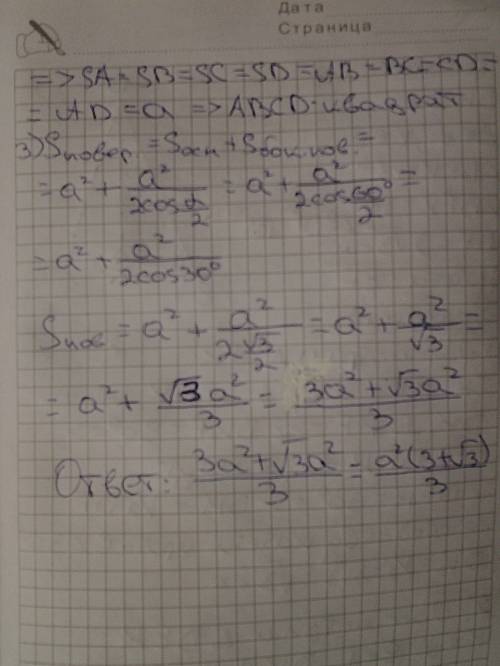 Дата
Страница
=> SA = SB = SC = SD = AB = BC = CD =
= AD = a => ABCD - квадрат
3) Sповер = Sосн + Sбок.пов. =
= a² + a²/(2cos α/2) = a² + a²/(2cos 60°/2) =
= a² + a²/(2cos30°)
Sпов = a² + a²/(2 √3/2) = a² + a²/√3 =
= a² + √3a²/3 = (3a² + √3a²)/3
Ответ: (3a² + √3a²)/3 = a²(3+√3)/3